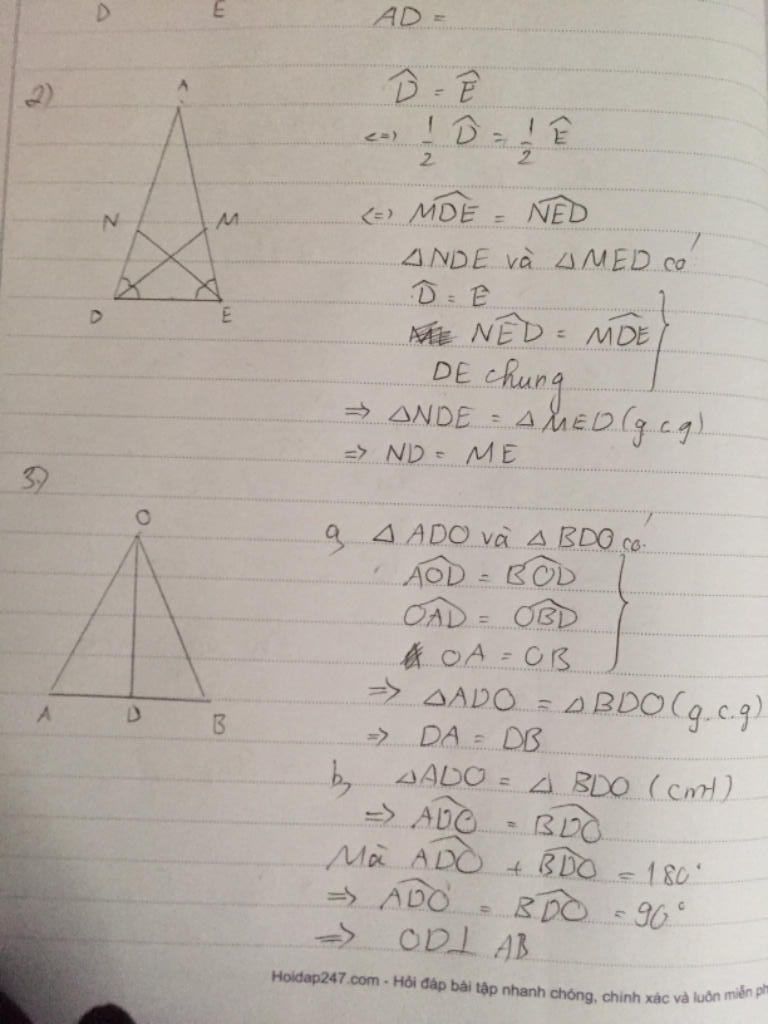 D E AD =
2) D̂ = Ê
A
<=> 1/2 D̂ = 1/2 Ê
N M <=> MDÊ = NÊD
△NDE và △MED có
D̂ = Ê
D E NÊD = MD̂E
DE chung
=> △NDE = △MED (g.c.g)
=> ND = ME
3)
O
a, △ADO và △BDO có
AÔD = BÔD
OÂD = OB̂D
OA = OB
A D B => △ADO = △BDO (g.c.g)
=> DA = DB
b, △ADO = △BDO (cmt)
=> AD̂O = BD̂O
Mà AD̂O + BD̂O = 180°
=> AD̂O = BD̂O = 90°
=> OD⊥ AB
Hoidap247.com - Hỏi đáp bài tập nhanh chóng, chính xác và luôn miễn ph